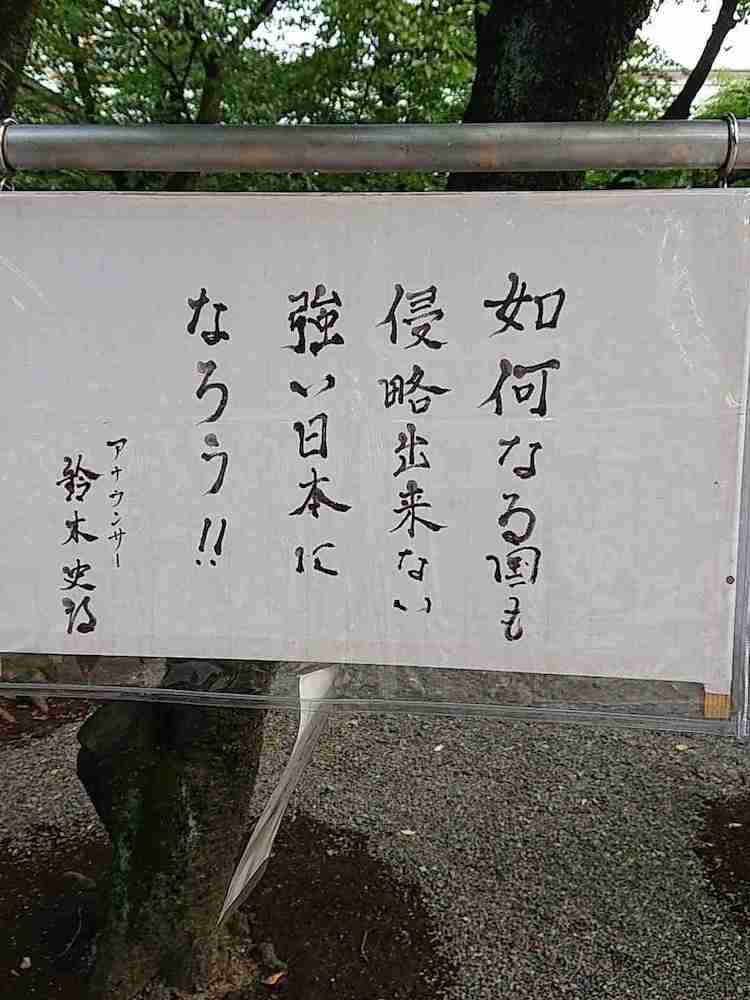 如何なる国も
侵略出来ない
強い日本に
なろう!!
アナウンサー
鈴木史朗